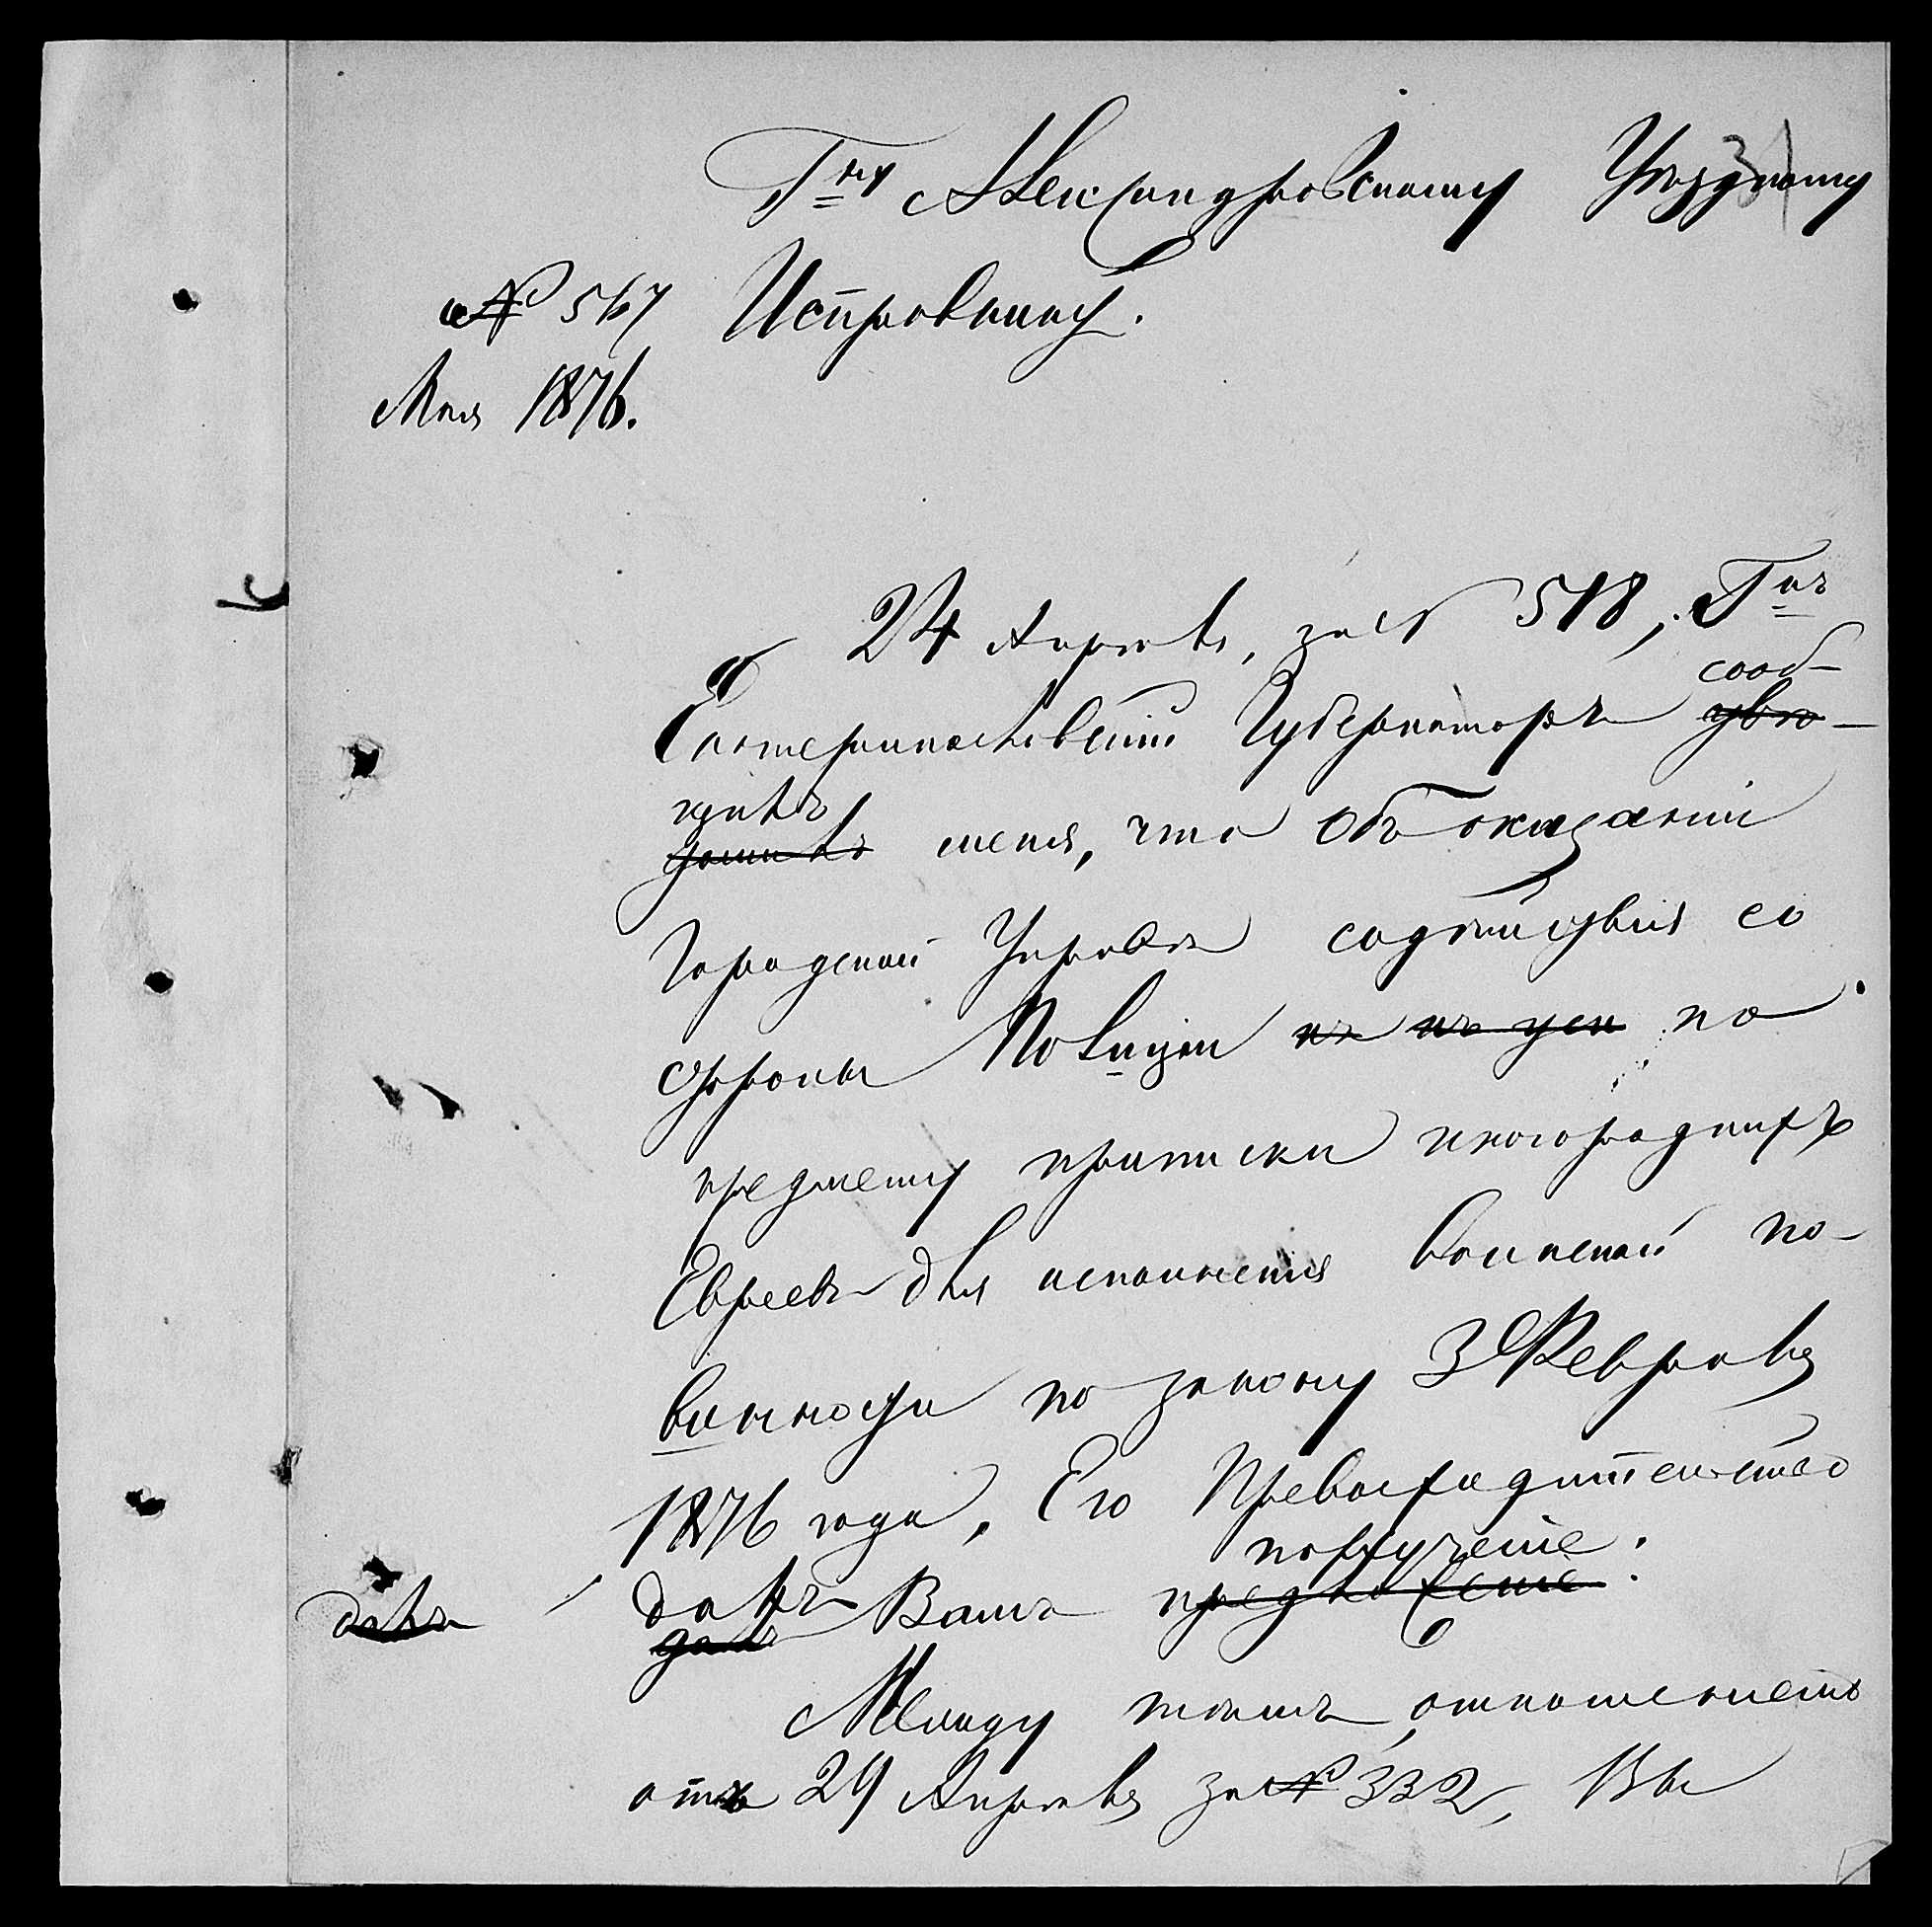 31
Гну Александровскому Уѣздному
№ 567 Исправнику.
Мая 1876.
24 Апрѣля, за № 518, Гнъ
сооб-
Екатеринославскій Губернаторъ увѣ-
щилъ
домилъ меня, что объ оказаніи
Городской Управѣ содѣйствія со
стороны Полиціи къ по
предмету приписки иногороднихъ
Евреевъ для исполненія воинской по-
винности по закону 3 Февраля
1876 года, Его Превосходительство
порученіе.
далъ далъ Вамъ предложеніе.
далъ
Между тѣмъ, отношеніемъ
отъ 29 Апрѣля за № 332, Вы